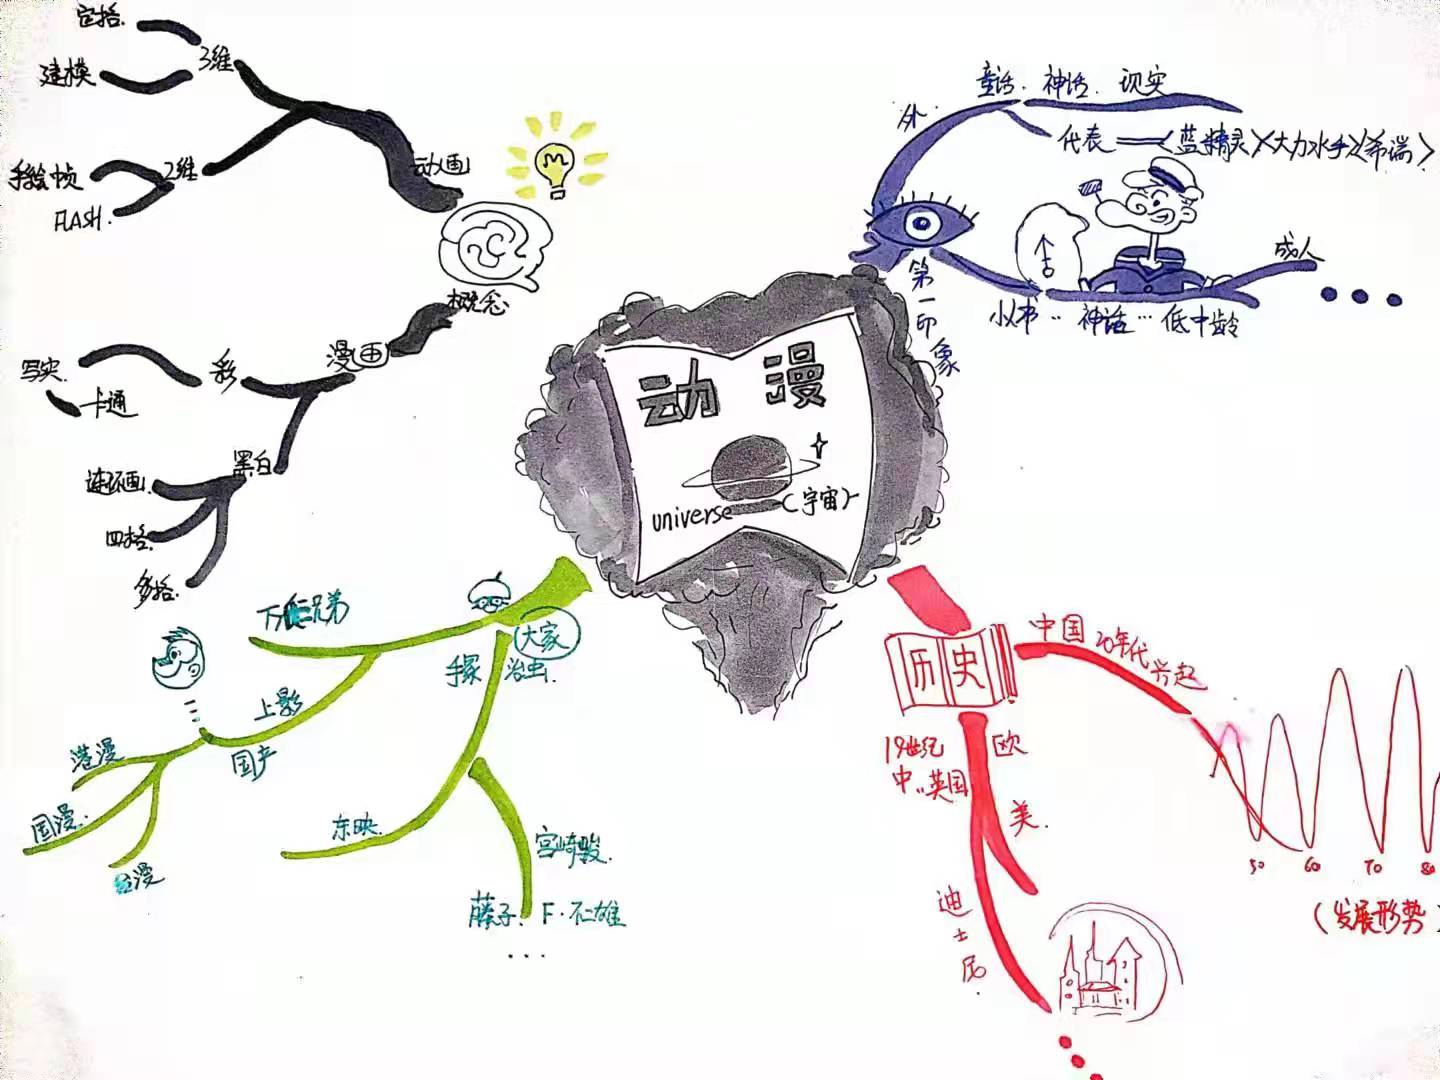 动漫
universe
(宇宙)
第一印象
外
童话、神话、现实
代表
〈蓝精灵〉〈大力水手〉〈希瑞〉
小人书··神话…低中龄
成人
历史
中国20年代兴起
50 60 70 80
(发展形势)
19世纪
中..英国
欧
美.
迪士尼.
大家
手冢治虫.
东映.
宫崎骏.
藤子、F·不二雄
...
万氏三兄弟
上影
国产
港漫
国漫.
台漫
概念
动画
3维
定格.
建模
2维
手绘帧
FLASH.
漫画
彩
写实.
卡通
黑白
连环画.
四格.
多格.